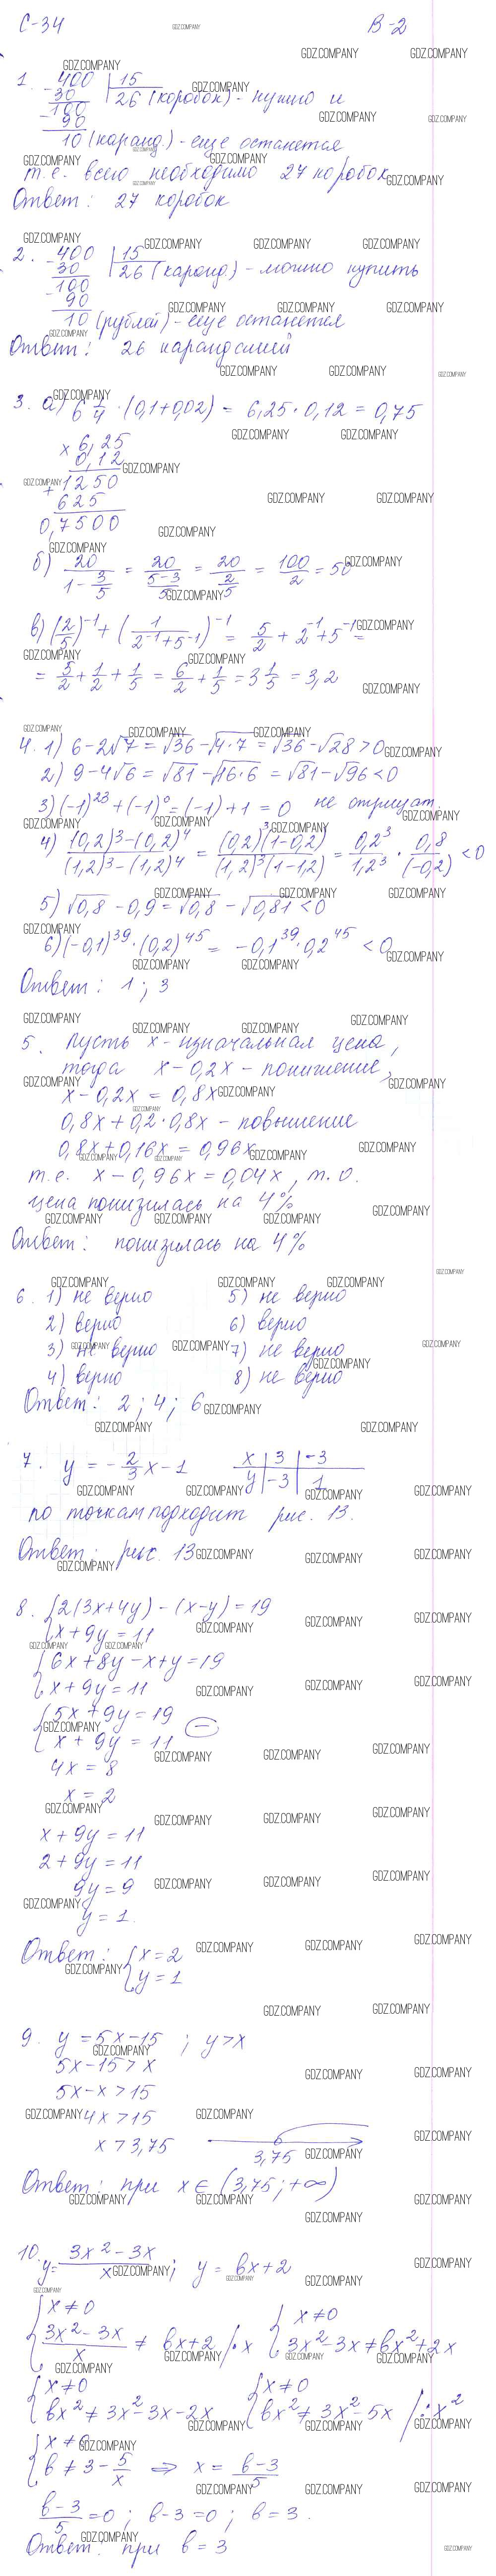 С-34 В-2
1. 400 | 15
- 30 26 (коробок) - нужно и
100
- 90
10 (каранд.) - еще останется
т.е. всего необходимо 27 коробок
Ответ: 27 коробок
2. 400 | 15
- 30 26 (каранд.) - можно купить
100
- 90
10 (рублей) - еще останется
Ответ: 26 карандашей
3. а) 6 1/4 · (0,1+0,02) = 6,25 · 0,12 = 0,75
× 6,25
0,12
+ 1250
625
0,7500
б) 20/(1 - 3/5) = 20/((5-3)/5) = 20/(2/5) = 100/2 = 50
в) (2/5)^-1 + (1/(2^-1+5^-1))^-1 = 5/2 + 2^-1 + 5^-1 =
= 5/2 + 1/2 + 1/5 = 6/2 + 1/5 = 3 1/5 = 3,2
4. 1) 6 - 2√7 = √36 - √4·7 = √36 - √28 > 0
2) 9 - 4√6 = √81 - √16·6 = √81 - √96 < 0
3) (-1)^23 + (-1)^0 = (-1) + 1 = 0 не отрицат.
4) ((0,2)^3 - (0,2)^4)/((1,2)^3 - (1,2)^4) = ((0,2)^3(1-0,2))/((1,2)^3(1-1,2)) = 0,2^3/1,2^3 · 0,8/(-0,2) < 0
5) √0,8 - 0,9 = √0,8 - √0,81 < 0
6) (-0,1)^39 · (0,2)^45 = -0,1^39 · 0,2^45 < 0
Ответ: 1; 3
5. Пусть x - изначальная цена,
тогда x - 0,2x - понижение,
x - 0,2x = 0,8x
0,8x + 0,2 · 0,8x - повышение
0,8x + 0,16x = 0,96x
т.е. x - 0,96x = 0,04x, т.о.
цена понизилась на 4%
Ответ: понизилась на 4%
6. 1) не верно 5) не верно
2) верно 6) верно
3) не верно 7) не верно
4) верно 8) не верно
Ответ: 2; 4; 6
7. y = -2/3 x - 1 x | 3 | -3
y | -3 | 1
по точкам подходит рис. 13.
Ответ: рис. 13
8. { 2(3x+4y) - (x-y) = 19
x + 9y = 11
{ 6x + 8y - x + y = 19
x + 9y = 11
{ 5x + 9y = 19 (-)
x + 9y = 11
4x = 8
x = 2
x + 9y = 11
2 + 9y = 11
9y = 9
y = 1.
Ответ: { x = 2
y = 1
9. y = 5x - 15 ; y > x
5x - 15 > x
5x - x > 15
4x > 15
x > 3,75 3,75
Ответ: при x ∈ (3,75; +∞)
10. y = (3x² - 3x)/x ; y = bx + 2
{ x ≠ 0 { x ≠ 0
(3x² - 3x)/x ≠ bx + 2 | · x 3x² - 3x ≠ bx² + 2x
{ x ≠ 0 { x ≠ 0
bx² ≠ 3x² - 3x - 2x bx² ≠ 3x² - 5x | : x²
{ x ≠ 0
b ≠ 3 - 5/x ⇒ x = (b-3)/5
(b-3)/5 = 0 ; b - 3 = 0 ; b = 3.
Ответ: при b = 3
GDZ.COMPANY